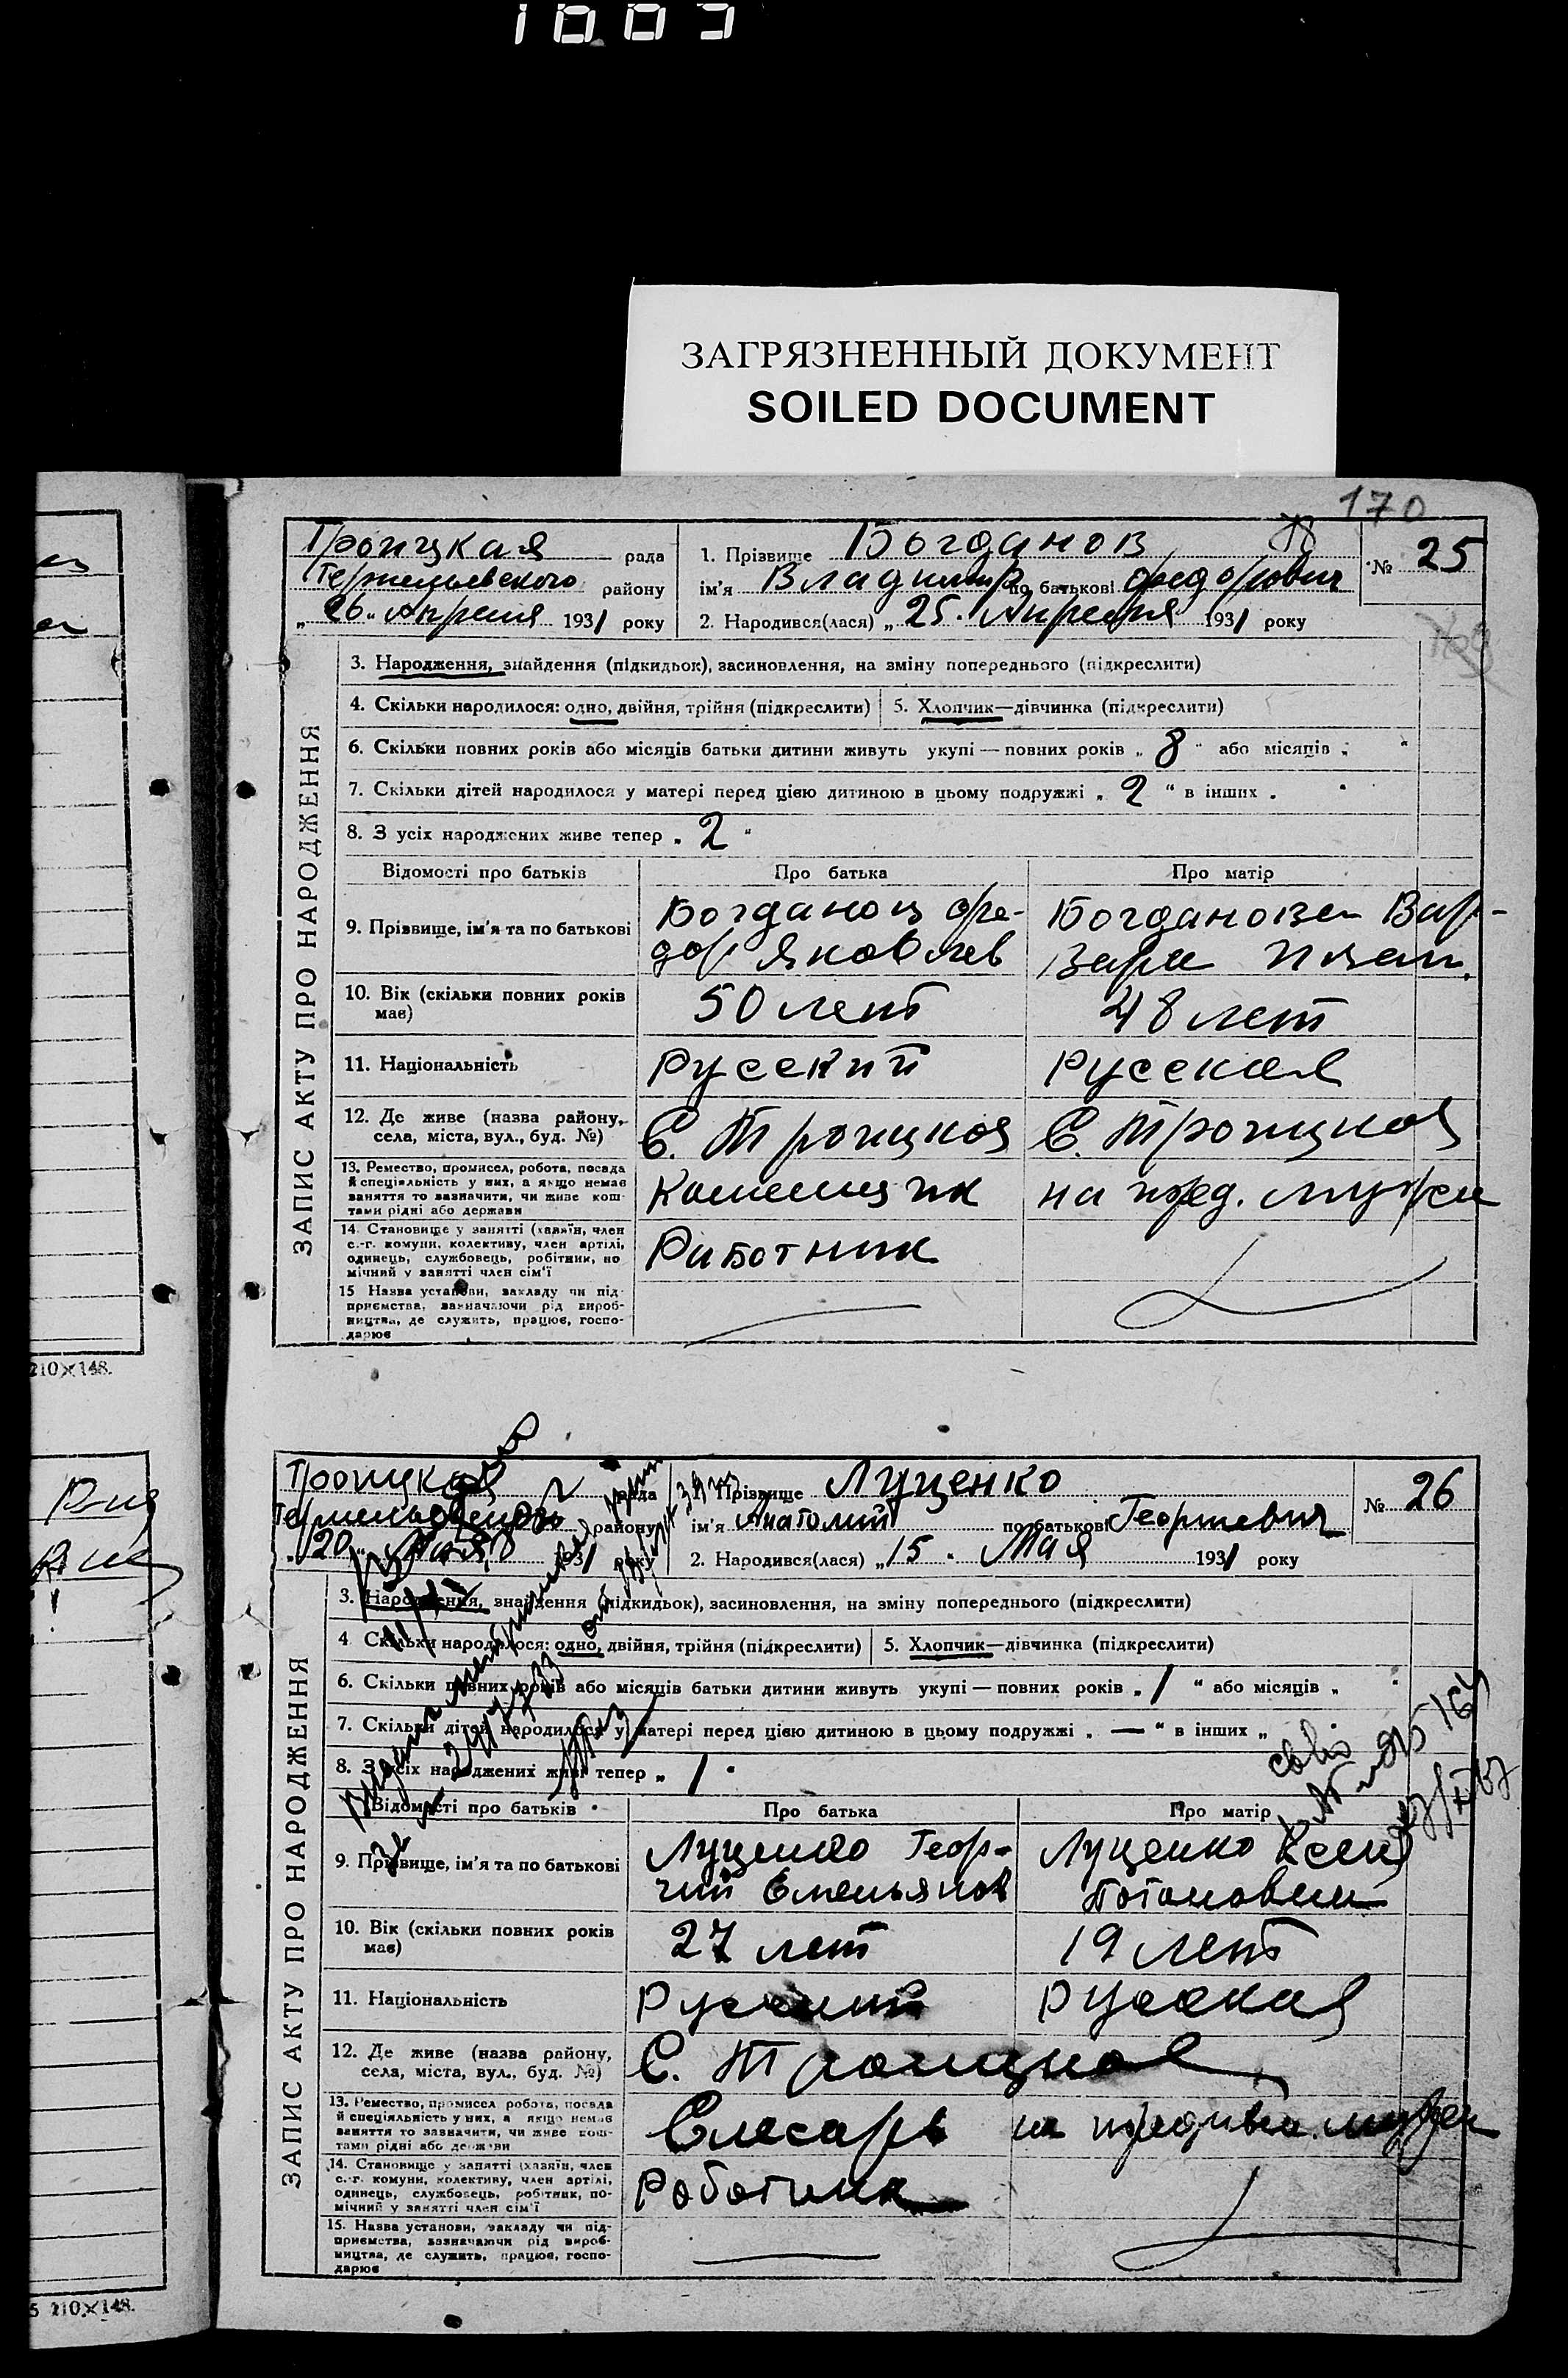 1003
ЗАГРЯЗНЕННЫЙ ДОКУМЕНТ
SOILED DOCUMENT
170
Троицкая рада
району
„26„ Апреля 1931 року
1. Прізвище Богданов
ім'я Владимир по батькові Федорович
2. Народився(лася) „25. Апреля 1931 року
№ 25
ЗАПИС АКТУ ПРО НАРОДЖЕННЯ
3. Народження, знайдення (підкидьок), засиновлення, на зміну попереднього (підкреслити)
4. Скільки народилося: одно, двійня, трійня (підкреслити) 5. Хлопчик—дівчинка (підкреслити)
6. Скільки повних років або місяців батьки дитини живуть укупі — повних років „ 8 " або місяців „ "
7. Скільки дітей народилося у матері перед цією дитиною в цьому подружжі „ 2 " в інших „ "
8. З усіх народжених живе тепер „ 2 "
Відомості про батьків Про батька Про матір
9. Прізвище, ім'я та по батькові
Богданов Фе-
дор Яковлев
Богданова Вар-
вара
10. Вік (скільки повних років має)
50 лет 48 лет
11. Національність Русский Русская
12. Де живе (назва району, села, міста, вул., буд. №)
С. Троицкое С. Троицкое
13. Ремество, промисел, робота, посада й спеціяльність у них, а якщо немає заняття то зазначити, чи живе коштами рідні або держави
Каменщик на ижд. мужа
14. Становище у занятті (хазяїн, член с.-г. комуни, колективу, член артілі, одинець, службовець, робітник, помічний у занятті член сім'ї
Работник
15 Назва установи, закладу чи підприємства, зазначаючи рід виробництва, де служить, працює, господарює
210×148.
Троицкая рада
району
„20„ Мая 1931 року
Прізвище Луценко
ім'я Анатолий по батькові Георгиевич
2. Народився(лася) „15. Мая 1931 року
№ 26
ЗАПИС АКТУ ПРО НАРОДЖЕННЯ
3. Народження, знайдення (підкидьок), засиновлення, на зміну попереднього (підкреслити)
4 Скільки народилося: одно, двійня, трійня (підкреслити) 5. Хлопчик—дівчинка (підкреслити)
6. Скільки повних років або місяців батьки дитини живуть укупі — повних років „ 1 " або місяців „ "
7. Скільки дітей народилося у матері перед цією дитиною в цьому подружжі „ — " в інших „
8. З усіх народжених живе тепер „ 1 "
Відомості про батьків Про батька Про матір
9. Прізвище, ім'я та по батькові
Луценко Геор-
гий Емельянов
Луценко
10. Вік (скільки повних років має)
27 лет 19 лет
11. Національність Русский Русская
12. Де живе (назва району, села, міста, вул., буд. №)
С. Троицкое
13. Ремество, промисел робота, посада й спеціяльність у них, а якщо немає заняття то зазначити, чи живе коштами рідні або держави
Слесарь на мужа
14. Становище у занятті (хазяїн, член с.-г. комуни, колективу, член артілі, одинець, службовець, робітник, помічний у занятті член сім'ї
Работник
15. Назва установи, закладу чи підприємства, зазначаючи рід виробництва, де служить, працює, господарює
210×148.